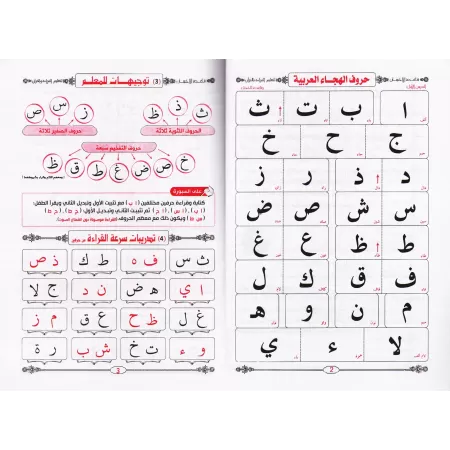 حروف الهجاء العربية
ا ب ت ث
ج ح خ
د ذ ر ز
س ش ص ض
ط ظ ع غ
ف ق ك ل
م ن و هـ
لا ء ي
2
(3) توجيهات للمعلم
ث ذ ظ ز س ص
الحروف اللثوية ثلاثة حروف الصفير ثلاثة
حروف التفخيم سبعة
خ ص ض غ ط ق ظ
على السبورة
كتابة وقراءة حرفين مختلفين مع تثبيت الأول وتبديل الثاني ويقرأ الطفل:
ثم تثبيت الثاني وتبديل الأول
ويكون ذلك مع معظم الحروف
(4) تدريبات سرعة القراءة
ث س ف ه ط ك ذ ص
ا ي ه ض ن د ج لا
غ ل ظ ح ع ق م ز
و ء ت خ ش ب ر ة
3